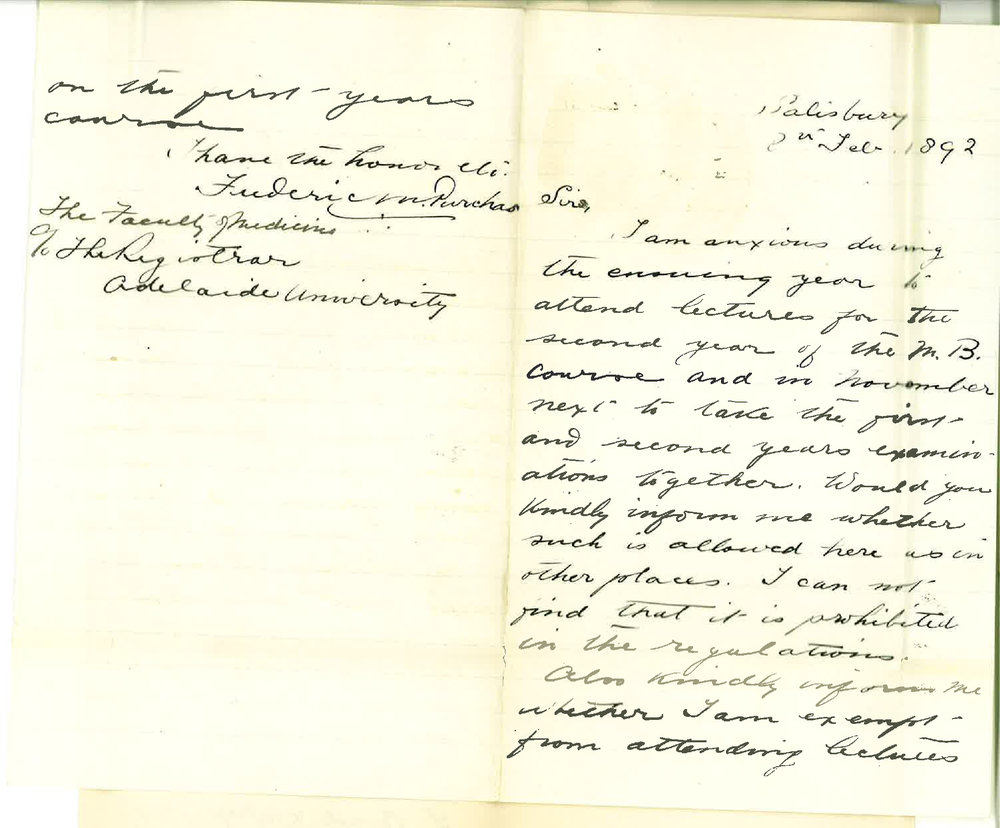 Salisbury
8th Feb. 1892
Sirs,
I am anxious during
the ensuing year to
attend lectures for the
second year of the M. B.
course and in November
next to take the first
and second years examin-
ations together. Would you
kindly inform me whether
such is allowed here as in
other places. I can not
find that it is prohibited
in the regulations.
Also kindly inform me
whether I am exempt
from attending lectures
on the first years
course
I have the honor etc.
Frederic M. Purchas
The Faculty of Medicine
c/o The Registrar
Adelaide University